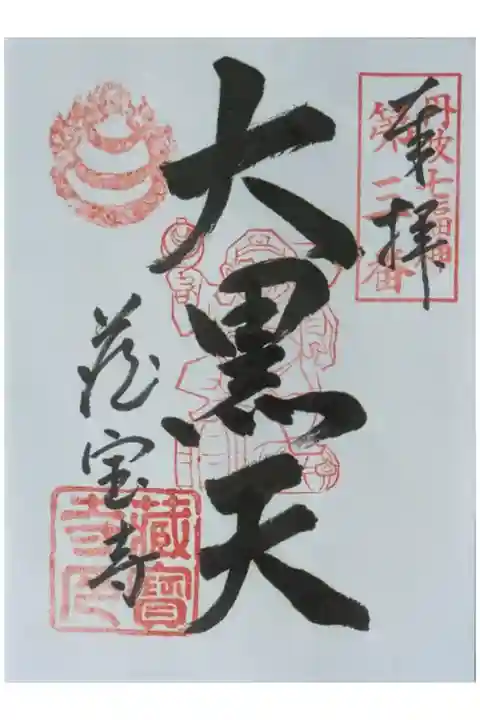 奉拝
丹波七福神
第 番
大黒天
蔵宝寺
藏寶
寺印